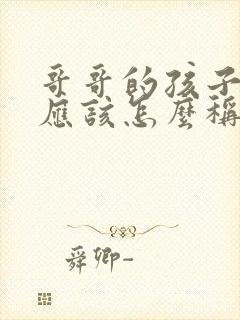 哥哥的孩子
應該怎麼稱
舜卿-